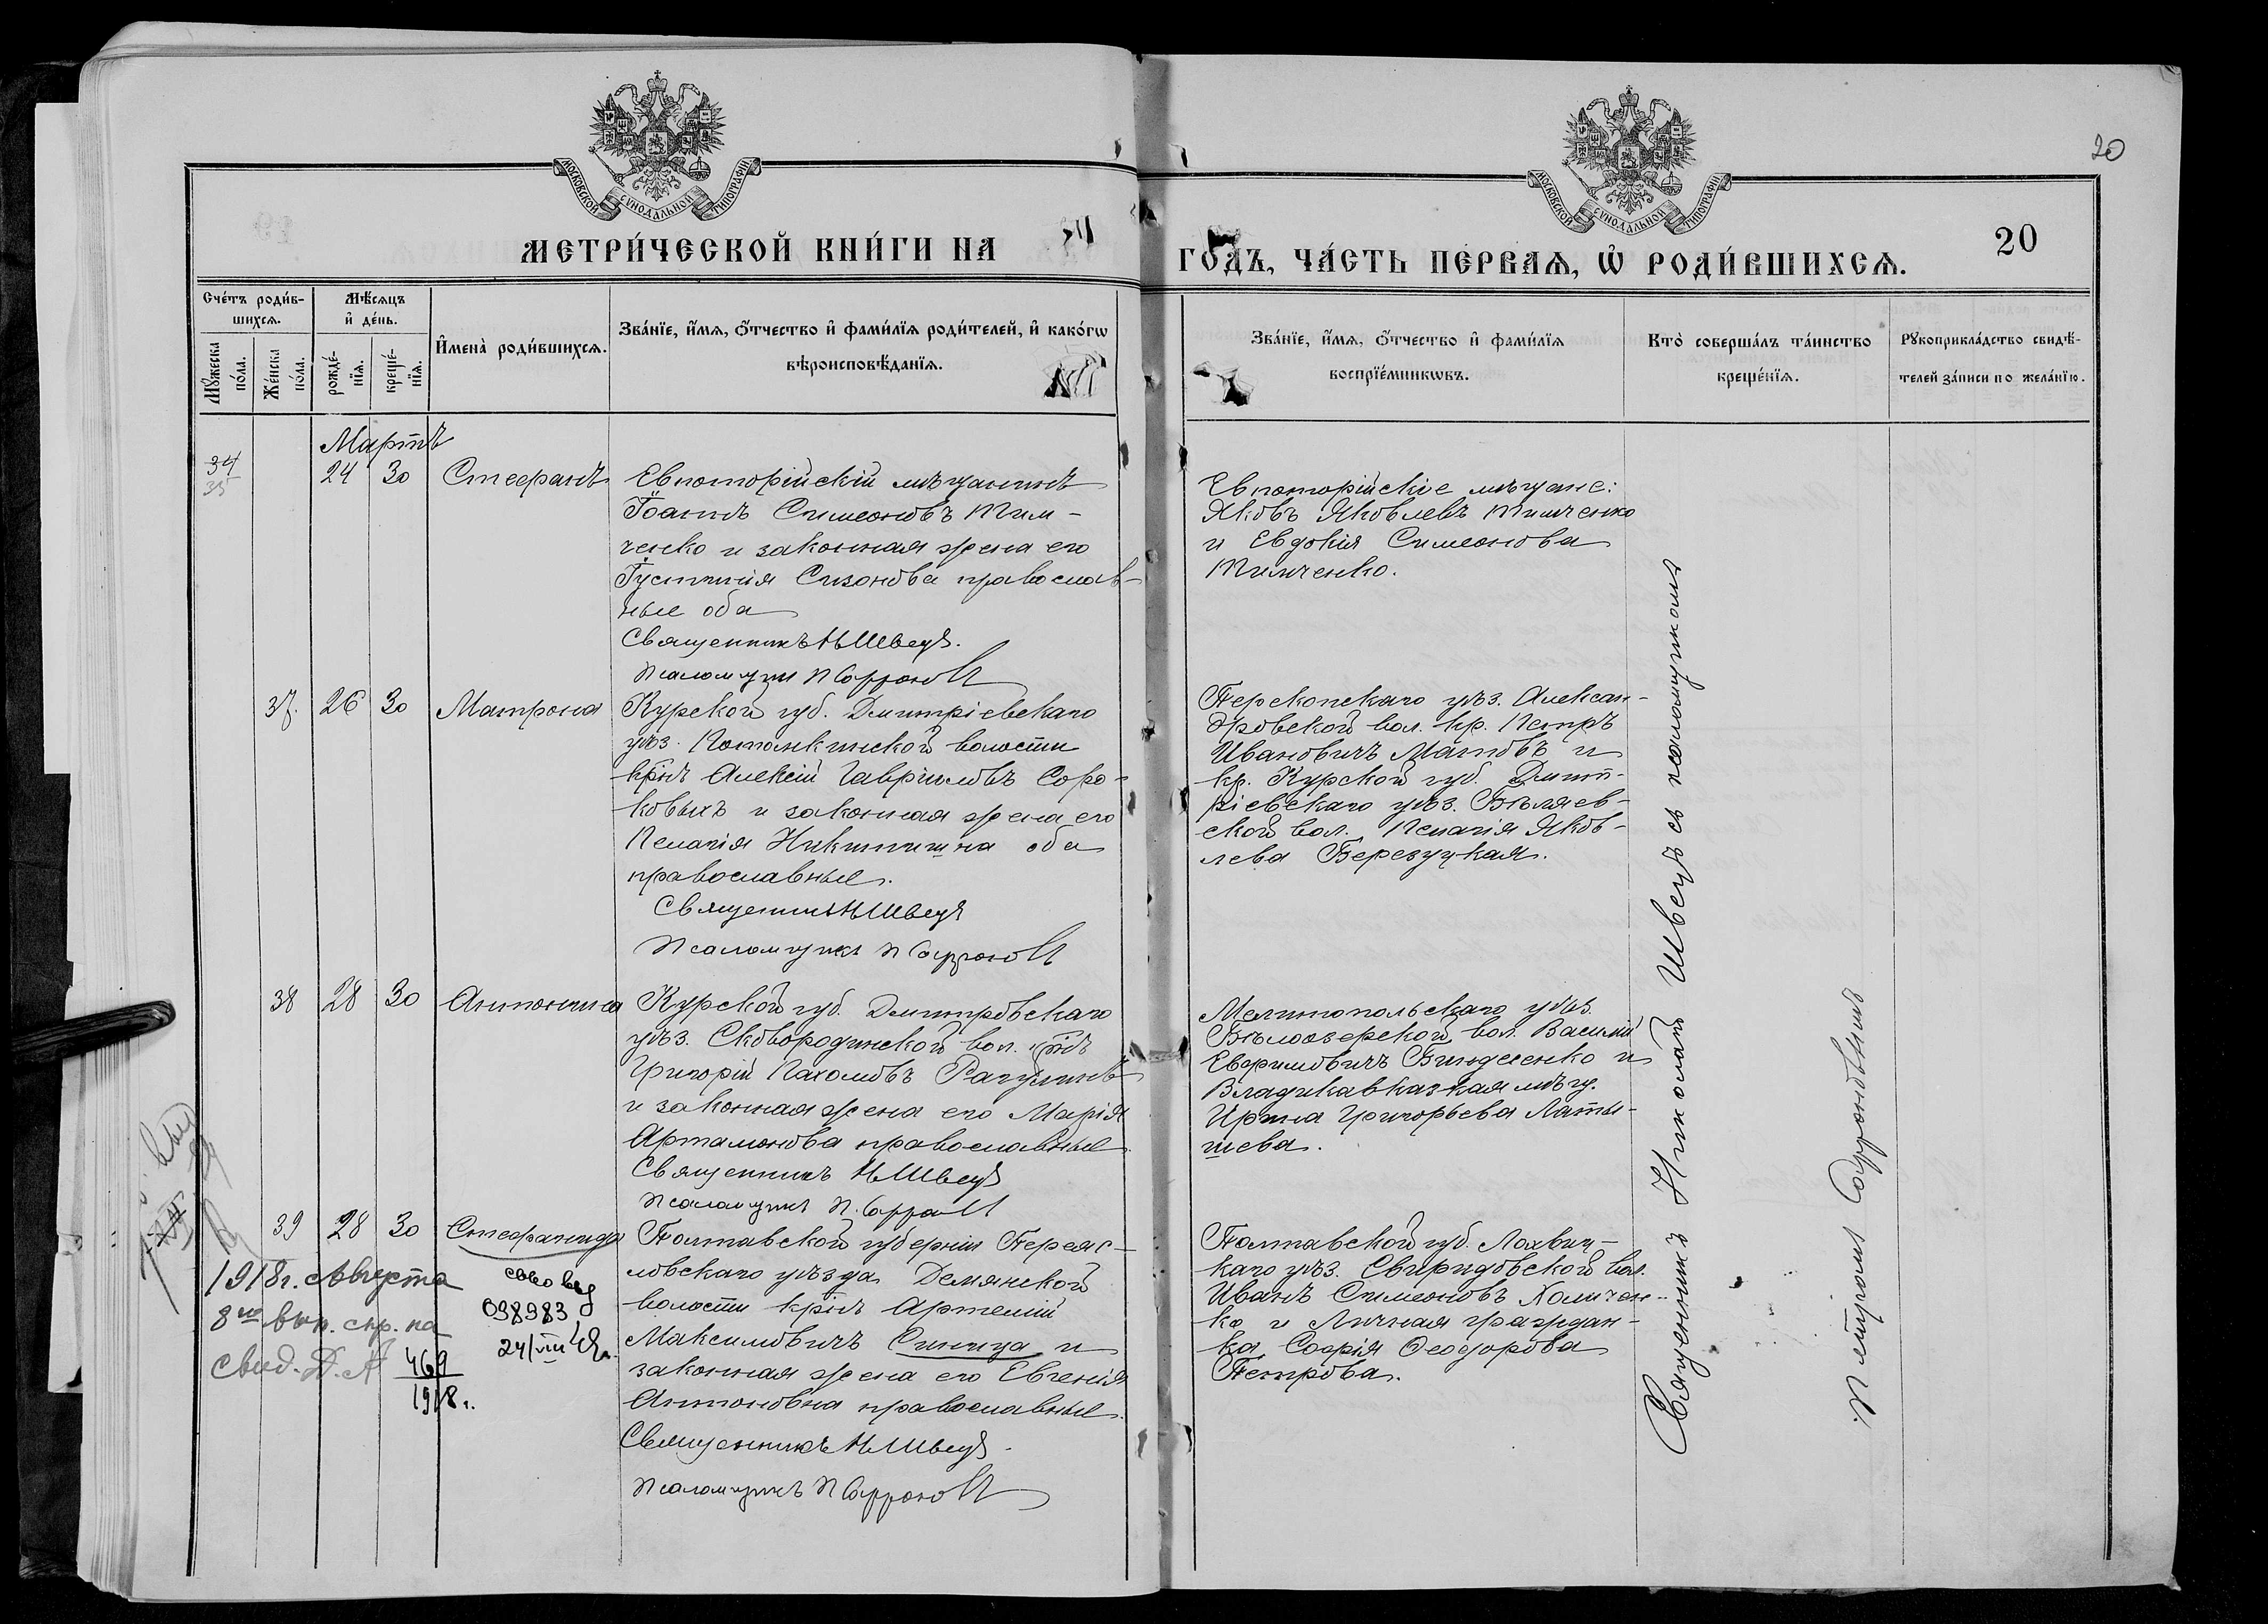 20
МОСКОВСКОЙ СѴНОДАЛЬНОЙ ТИПОГРАФІИ
МОСКОВСКОЙ СѴНОДАЛЬНОЙ ТИПОГРАФІИ
МЕТРИ́ЧЕСКОЙ КНИ́ГИ НА
ГО́ДЪ, ЧА́СТЬ ПЕ́РВАѦ, Ѡ҆ РОДИ́ВШИХСѦ.
20
Сче́тъ роди́в-
шихсѧ.
Мꙋ́жеска по́ла.
Же́нска по́ла.
Мѣ́сѧцъ
и҆ де́нь.
рожде́-
нїѧ.
креще́-
нїѧ.
И҆мена̀ роди́вшихсѧ.
Зва́нїе, и҆́мѧ, ѻ҆́тчество и҆ фами́лїѧ роди́телей, и҆ како́гѡ
вѣроисповѣ́данїѧ.
Зва́нїе, и҆́мѧ, ѻ҆́тчество и҆ фами́лїѧ
воспрїе́мникѡвъ.
Кто̀ соверша́лъ та́инство
креще́нїѧ.
Рꙋкоприкла́дство свидѣ́-
телей за́писи по жела́нїю.
Мартъ
34
35
24 30 Стефанъ
Евпаторійскій мѣщанинъ
Іоаннъ Симеоновъ Тим-
ченко и законная жена его
Іустинія Сизонова православ-
ные оба
Священникъ Н Швецъ.
Псаломщикъ П Сафронов
Евпаторійскіе мѣщане:
Яковъ Яковлевъ Тимченко
и Евдокія Симеонова
Тимченко.
37. 26 30 Матрона
Курской губ. Дмитріевскаго
уѣз. волости
крнъ Алексій Гавриловъ Соро-
ковыхъ и законная жена его
Пелагія Никитишна оба
православные.
Священникъ Н Швецъ
Псаломщикъ П Сафронов
Перекопскаго уѣз. Алексан-
дровской вол. кр. Петръ
Ивановичъ Матовъ и
кр. Курской губ. Дмит-
ріевскаго уѣз. Бѣляев-
ской вол. Пелагія Яков-
лева Березуцкая.
38 28 30 Антонина
Курской губ. Дмитровскаго
уѣз. Сковородинской вол. крнъ
Григорій Пахомовъ Рагулинъ
и законная жена его Марія
Артамонова православные.
Священникъ Н Швецъ
Псаломщикъ П. Сафронов
Мелитопольскаго уѣз.
Бѣлоозерской вол. Василій
Евфимовичъ и
Владикавказская мѣщ.
Ирина Григорьева Латы-
шева.
39 28 30 Стефанида
Полтавской губерніи Переяс-
ловскаго уѣзда Демянской
волости крнъ Артемій
Максимовичъ Синица и
законная жена его Евгенія
Антоновна православные.
Священникъ Н Швецъ.
Псаломщикъ П Сафронов
Полтавской губ. Лохвиц-
каго уѣз. Свиридовской вол.
Иванъ Симеоновъ Хомичен-
ко и Личная граждан-
ка Софія Ѳеодорова
Петрова.
1918г. Августа
8го вып. спр. на
свид. Д. А 469
1918 г.
098983
24/VIII
Священникъ Николай Швецъ съ псаломщикомъ
Петромъ Сафроновымъ